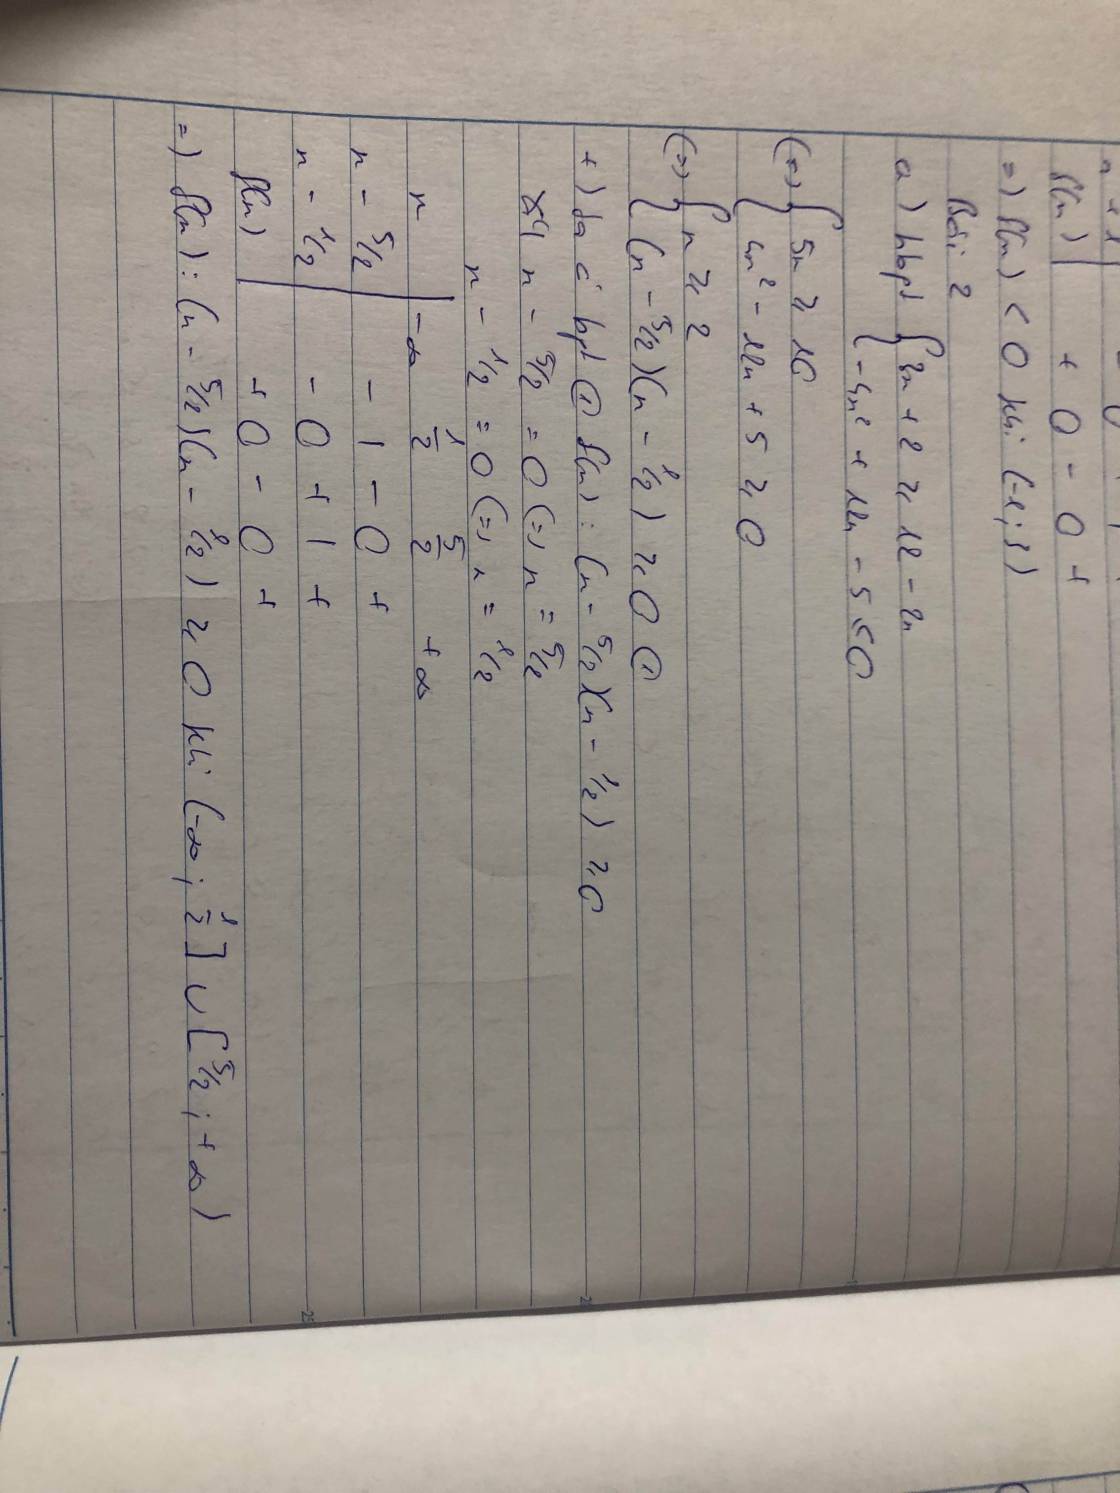 f(x) | + 0 - 0 +
=) f(x) < 0 khi (-1; 3)
Bài 2
a) hbpt { 3x + 2 ≥ 12 - 2x
{ -4x² + 12x - 5 ≤ 0
(=) { 5x ≥ 10
{ 4x² - 12x + 5 ≥ 0
(=) { x ≥ 2
{ (x - 5/2)(x - 1/2) ≥ 0 ①
+) ta có bpt ① f(x): (x - 5/2)(x - 1/2) ≥ 0
xét x - 5/2 = 0 (=) x = 5/2
x - 1/2 = 0 (=) x = 1/2
x | -∞ 1/2 5/2 +∞
x - 5/2 | - | - 0 +
x - 1/2 | - 0 + | +
f(x) | + 0 - 0 +
=) f(x): (x - 5/2)(x - 1/2) ≥ 0 khi (-∞; 1/2] ∪ [5/2; +∞)